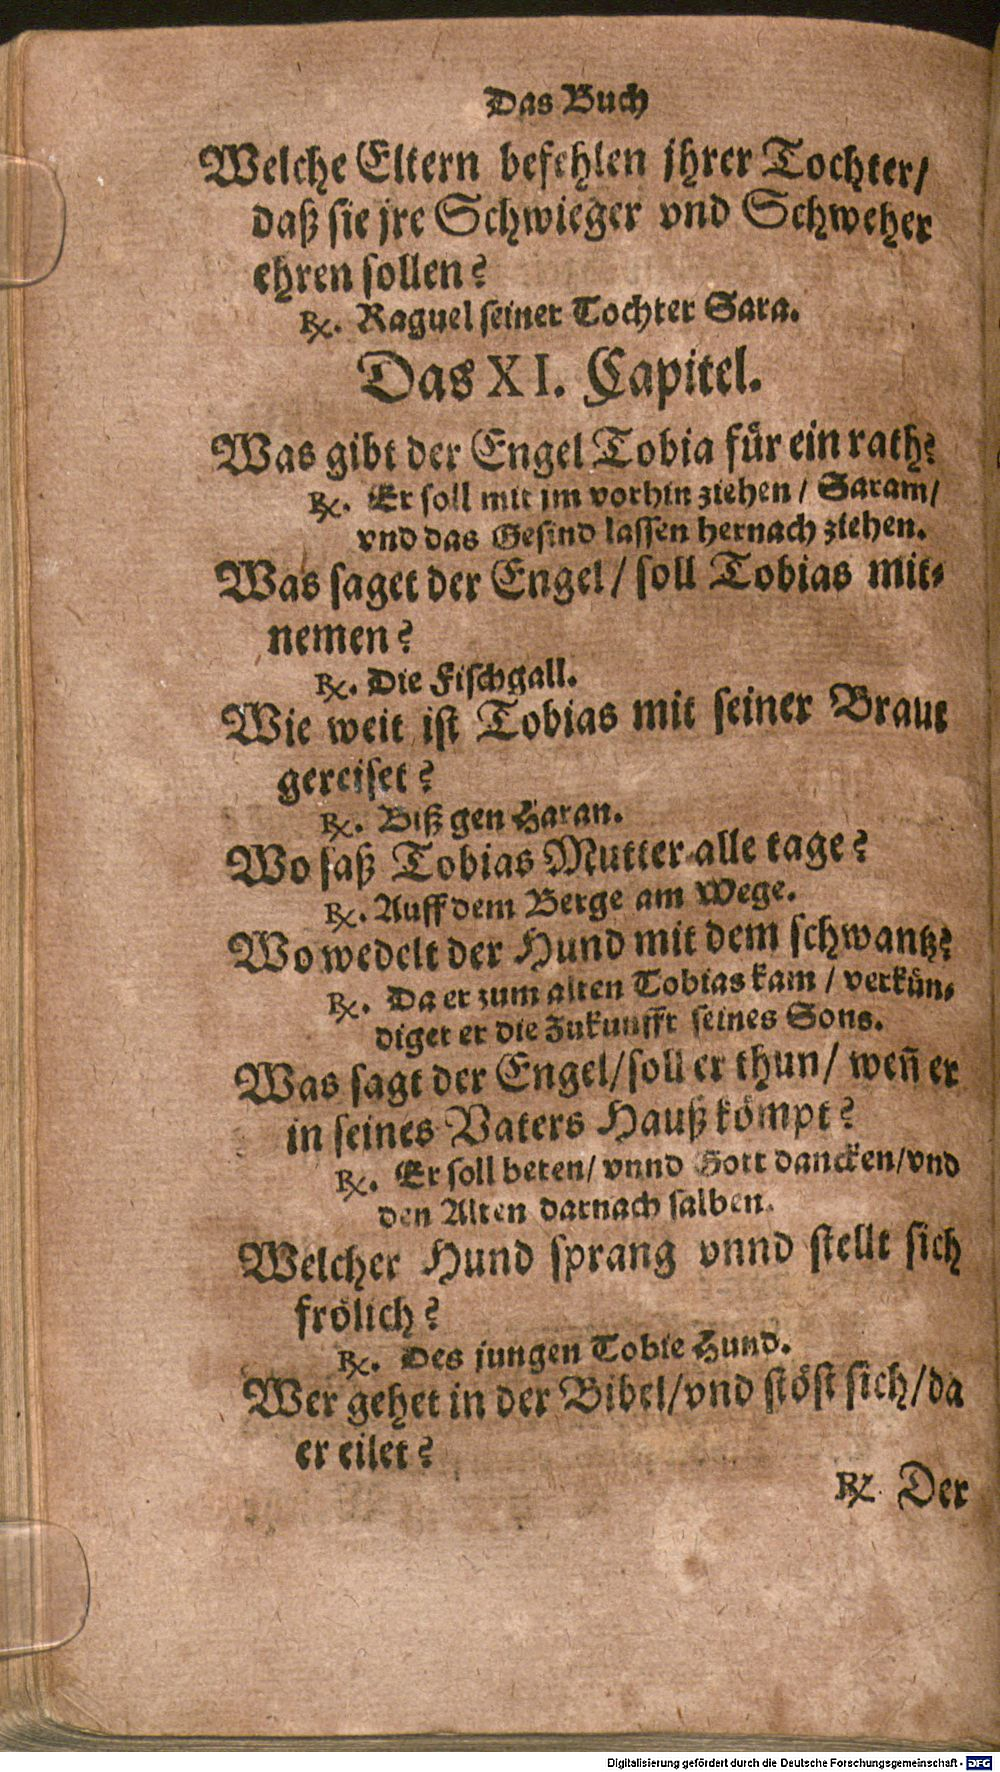 Das Buch
Welche Eltern befehlen jhrer Tochter/
daß sie jre Schwieger vnd Schweher
ehren sollen?
℞. Raguel seiner Tochter Sara.
Das XI. Capitel.
Was gibt der Engel Tobia für ein rath?
℞. Er soll mit im vorhin ziehen / Saram/
vnd das Gesind lassen hernach ziehen.
Was saget der Engel / soll Tobias mit-
nemen?
℞. Die Fischgall.
Wie weit ist Tobias mit seiner Braut
gereiset?
℞. Biß gen Haran.
Wo saß Tobias Mutter alle tage?
℞. Auff dem Berge am Wege.
Wo wedelt der Hund mit dem schwantz?
℞. Da er zum alten Tobias kam / verkün-
diget er die Zukunfft seines Sons.
Was sagt der Engel/soll er thun/ weñ er
in seines Vaters Hauß kömpt?
℞. Er soll beten/ vnnd Gott dancken/vnd
den Alten darnach salben.
Welcher Hund sprang vnnd stellt sich
frölich?
℞. Des jungen Tobie Hund.
Wer gehet in der Bibel/vnd stöst sich/da
er eilet?
℞ Der
Digitalisierung gefördert durch die Deutsche Forschungsgemeinschaft - DFG